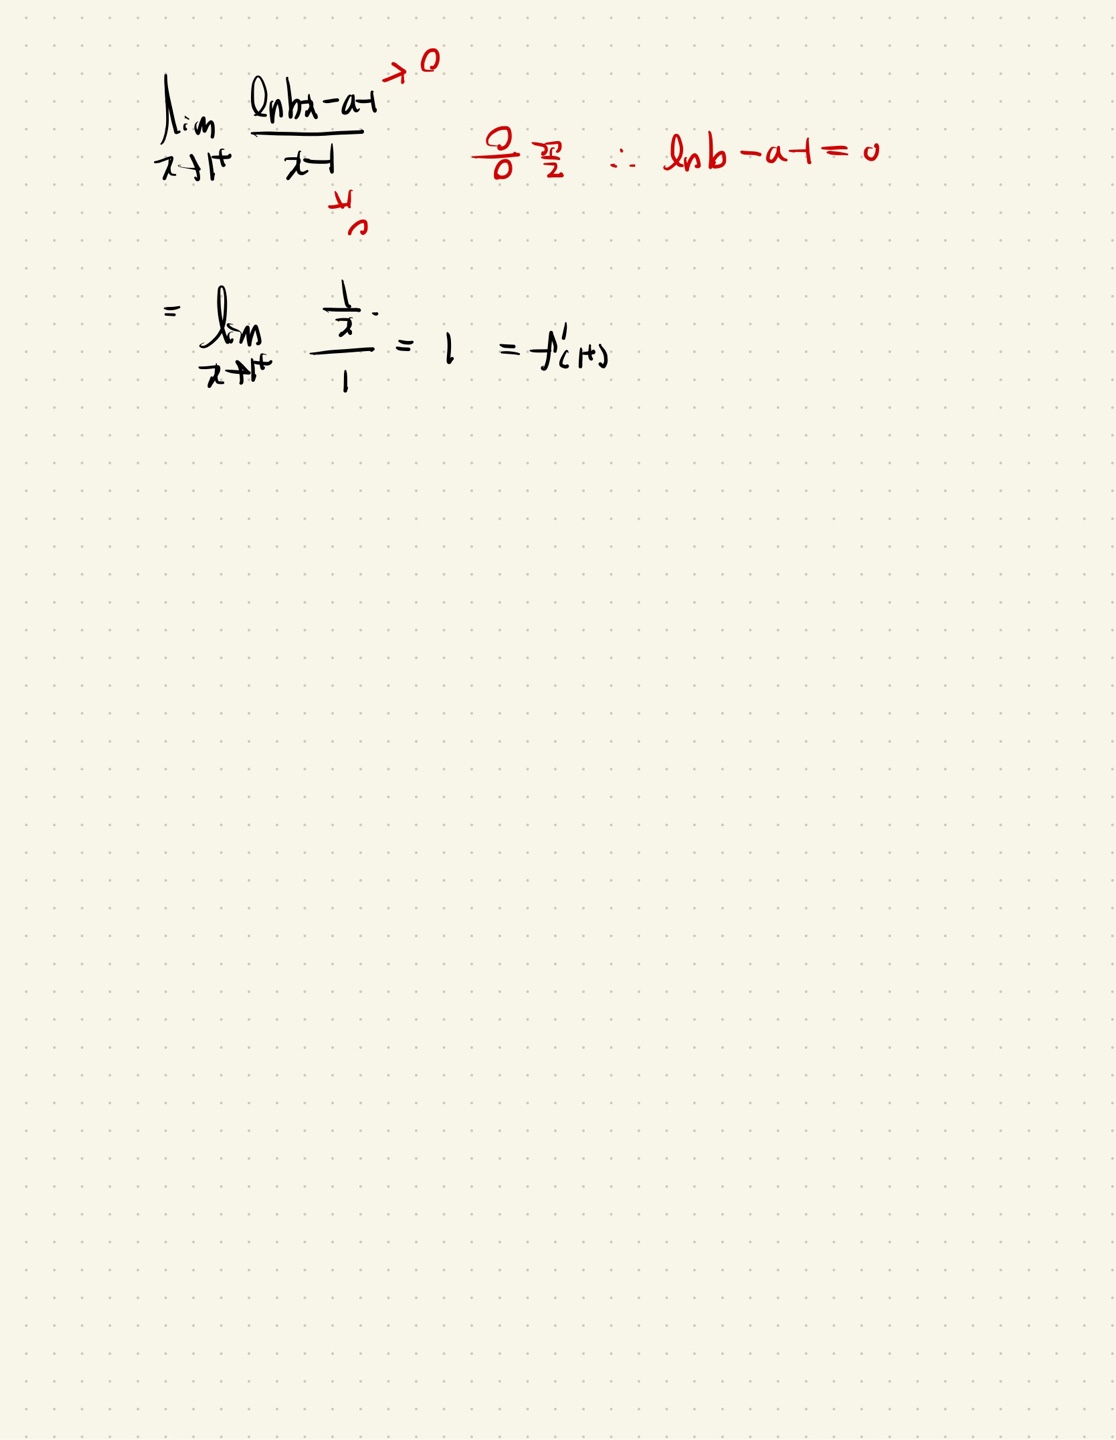 lim x→1⁺ (ln bx - a - 1)/(x - 1) → 0 → 0 0/0 꼴 ∴ ln b - a - 1 = 0
= lim x→1⁺ (1/x)/1 = 1 = f'(1+)